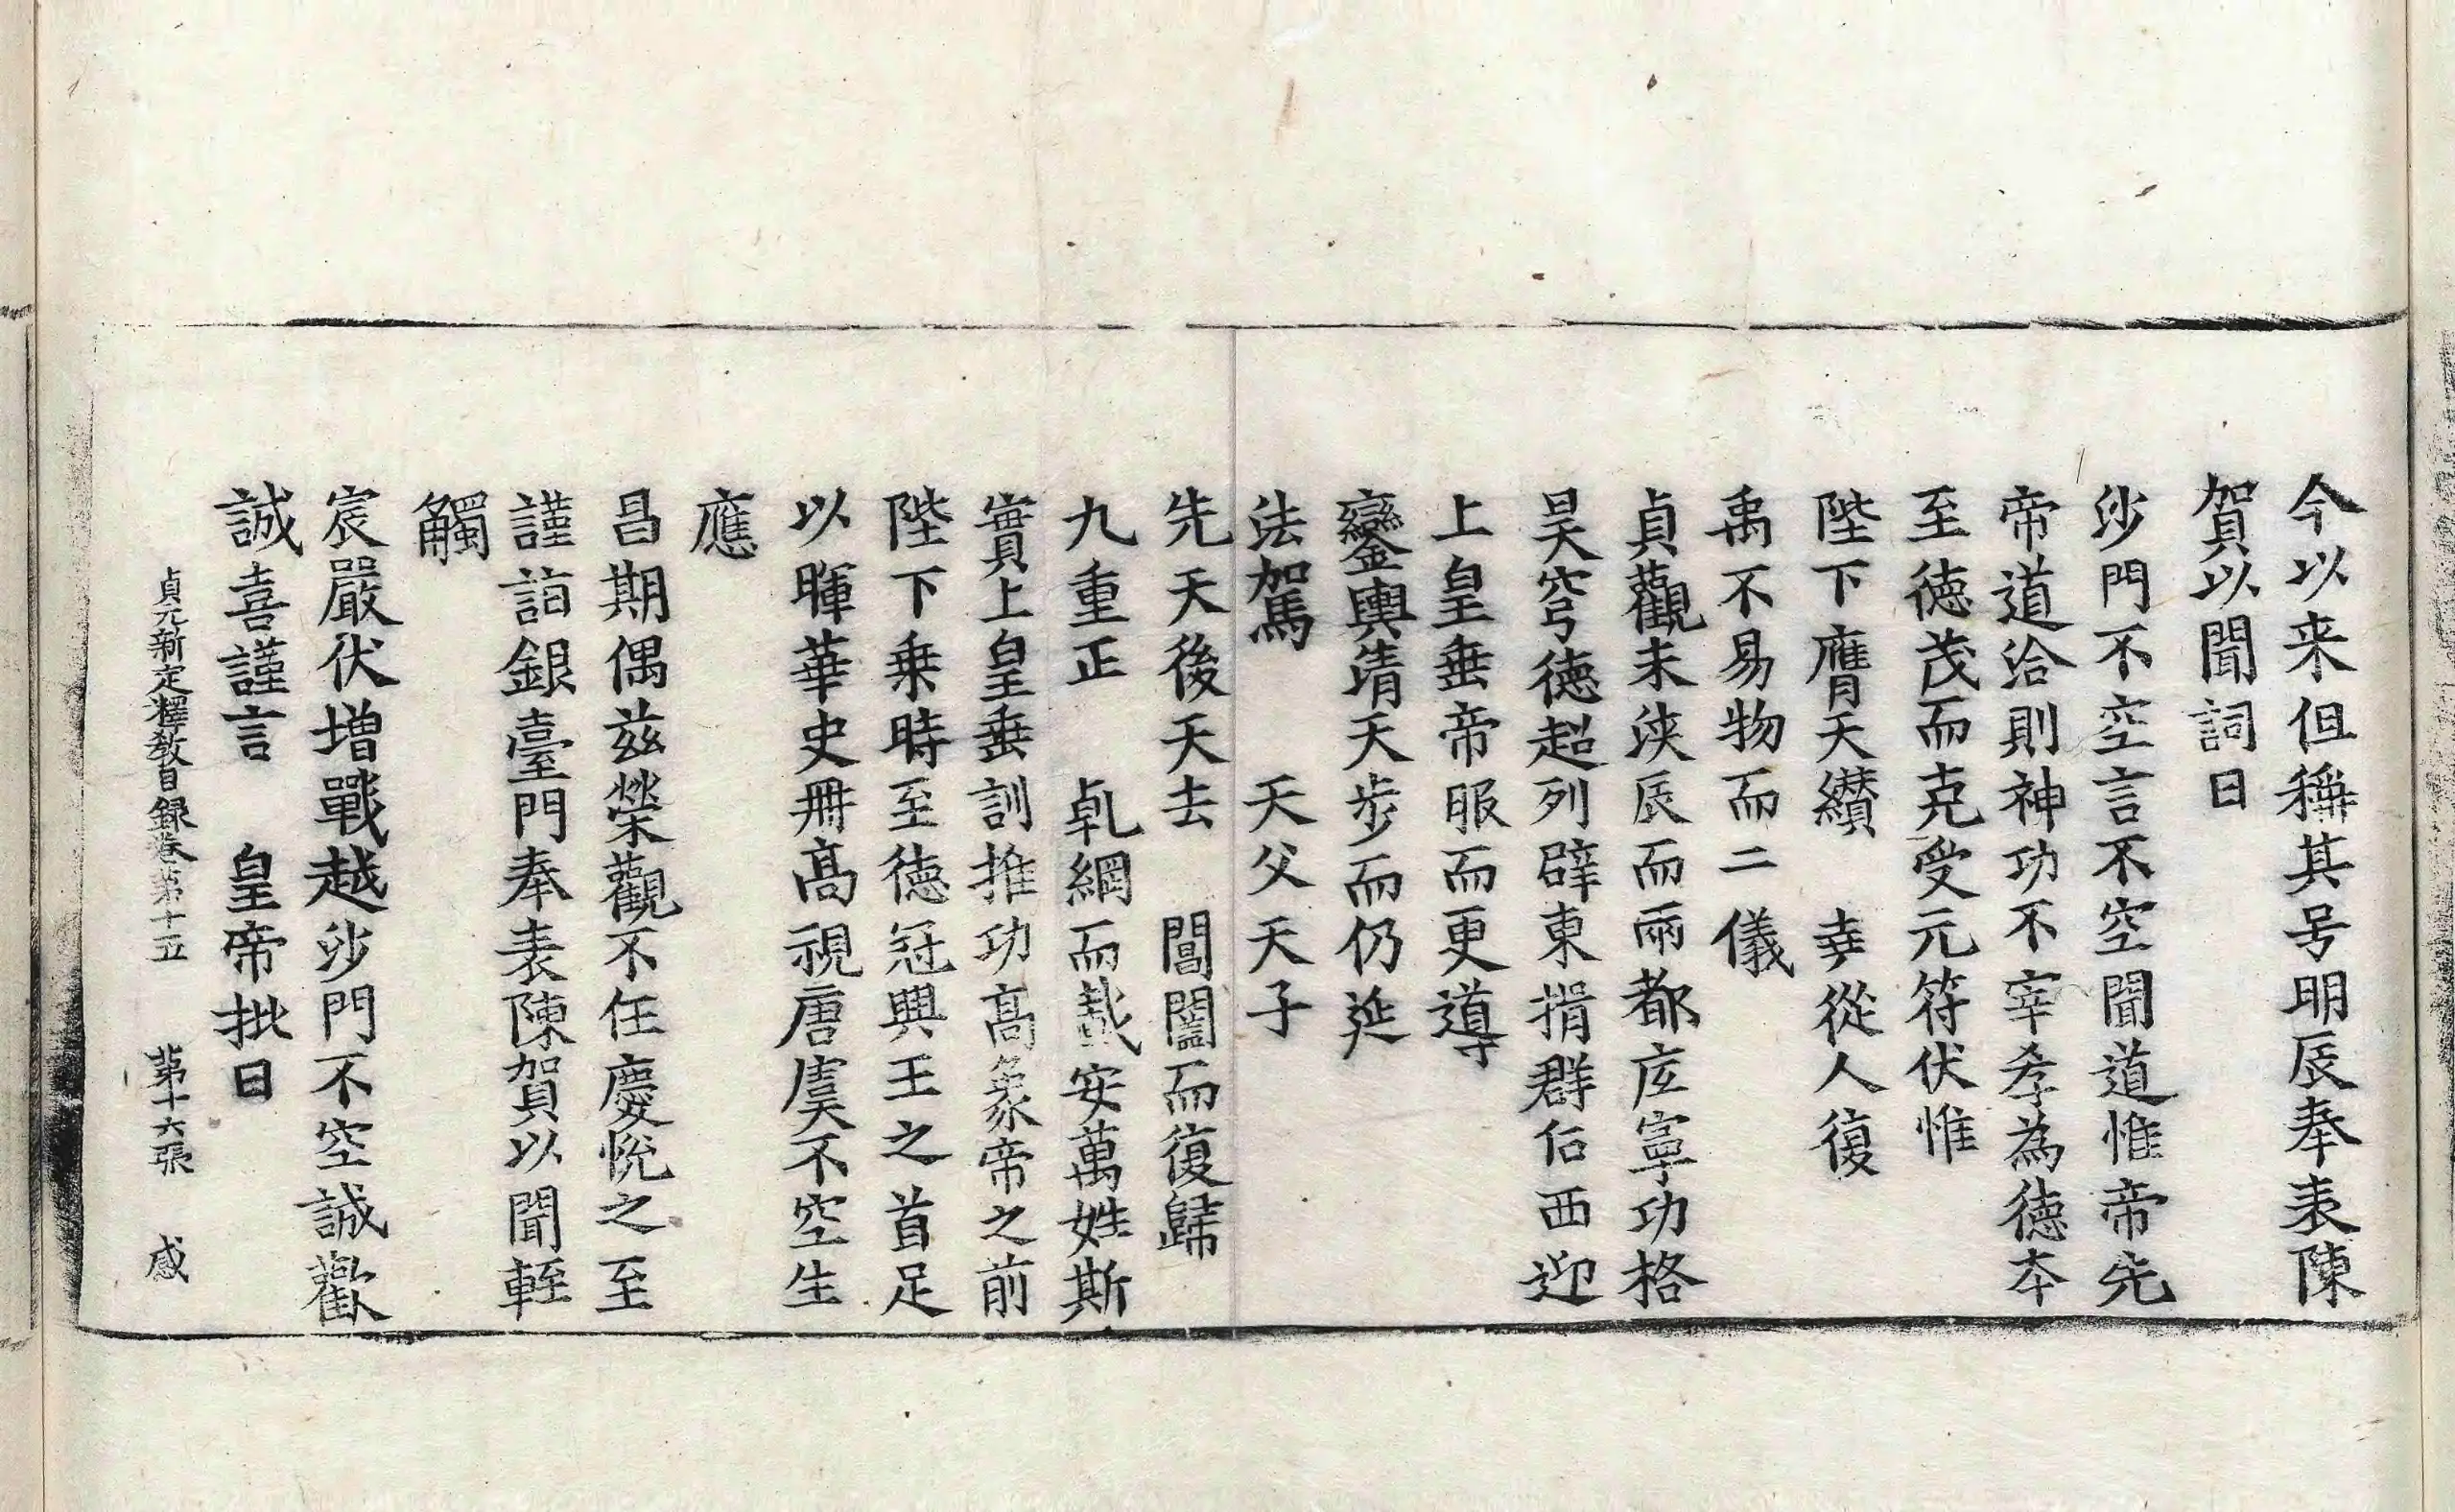 今以来但稱其号明辰奉表陳
賀以聞詞曰
沙門不空言不空聞道惟帝先
帝道洽則神功不宰孝為德夲
至德茂而克受元符伏惟
陛下膺天纘　㚔從人復
禹不易物而二儀
貞觀未浹辰而兩都㡳寧功格
昊穹德超列辟東捐群后西迎
上皇垂帝服而更導
鑾輿清天步而仍延
法駕　天父天子
先天後天去　閶闔而復歸
九重正　乹綱而載安萬姓斯
實上皇垂訓推功高象帝之前
陛下乗時至德冠興王之首足
以暉華史冊高視唐虞不空生
應
昌期偶兹榮觀不任慶恱之至
謹詣銀臺門奉表陳賀以聞輊
觸
宸嚴伏増戰越沙門不空誠歡
誠喜謹言　皇帝批曰
貞元新定釋教目録卷第十五　第十六張　感